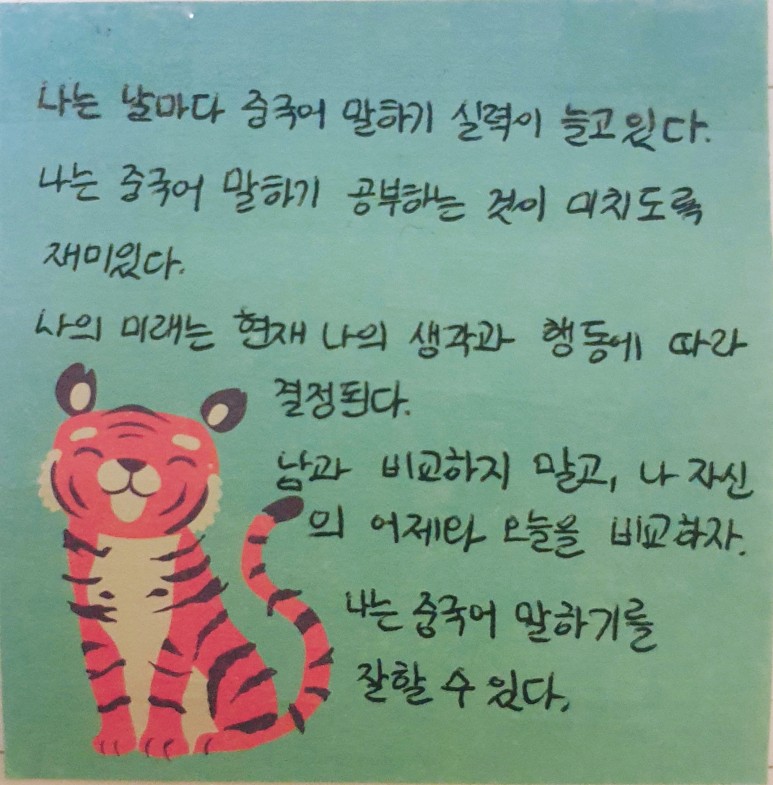 나는 날마다 중국어 말하기 실력이 늘고있다.
나는 중국어 말하기 공부하는 것이 미치도록
재미있다.
나의 미래는 현재 나의 생각과 행동에 따라
결정된다.
남과 비교하지 말고, 나 자신
의 어제와 오늘을 비교하자.
나는 중국어 말하기를
잘할 수 있다.